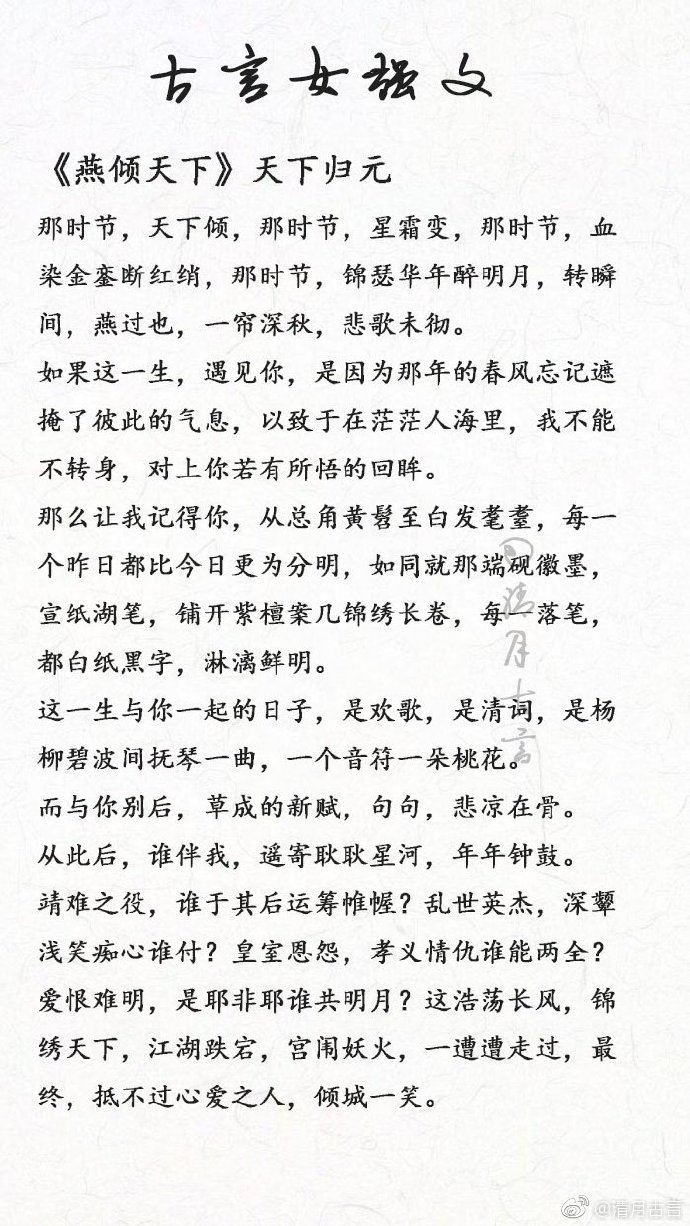 古言女强文
《燕倾天下》天下归元
那时节，天下倾，那时节，星霜变，那时节，血
染金銮断红绡，那时节，锦瑟华年醉明月，转瞬
间，燕过也，一帘深秋，悲歌未彻。
如果这一生，遇见你，是因为那年的春风忘记遮
掩了彼此的气息，以致于在茫茫人海里，我不能
不转身，对上你若有所悟的回眸。
那么让我记得你，从总角黄髫至白发耄耋，每一
个昨日都比今日更为分明，如同就那端砚徽墨，
宣纸湖笔，铺开紫檀案几锦绣长卷，每一落笔，
都白纸黑字，淋漓鲜明。
这一生与你一起的日子，是欢歌，是清词，是杨
柳碧波间抚琴一曲，一个音符一朵桃花。
而与你别后，草成的新赋，句句，悲凉在骨。
从此后，谁伴我，遥寄耿耿星河，年年钟鼓。
靖难之役，谁于其后运筹帷幄？乱世英杰，深颦
浅笑痴心谁付？皇室恩怨，孝义情仇谁能两全？
爱恨难明，是耶非耶谁共明月？这浩荡长风，锦
绣天下，江湖跌宕，宫闱妖火，一遭遭走过，最
终，抵不过心爱之人，倾城一笑。
@清月古言